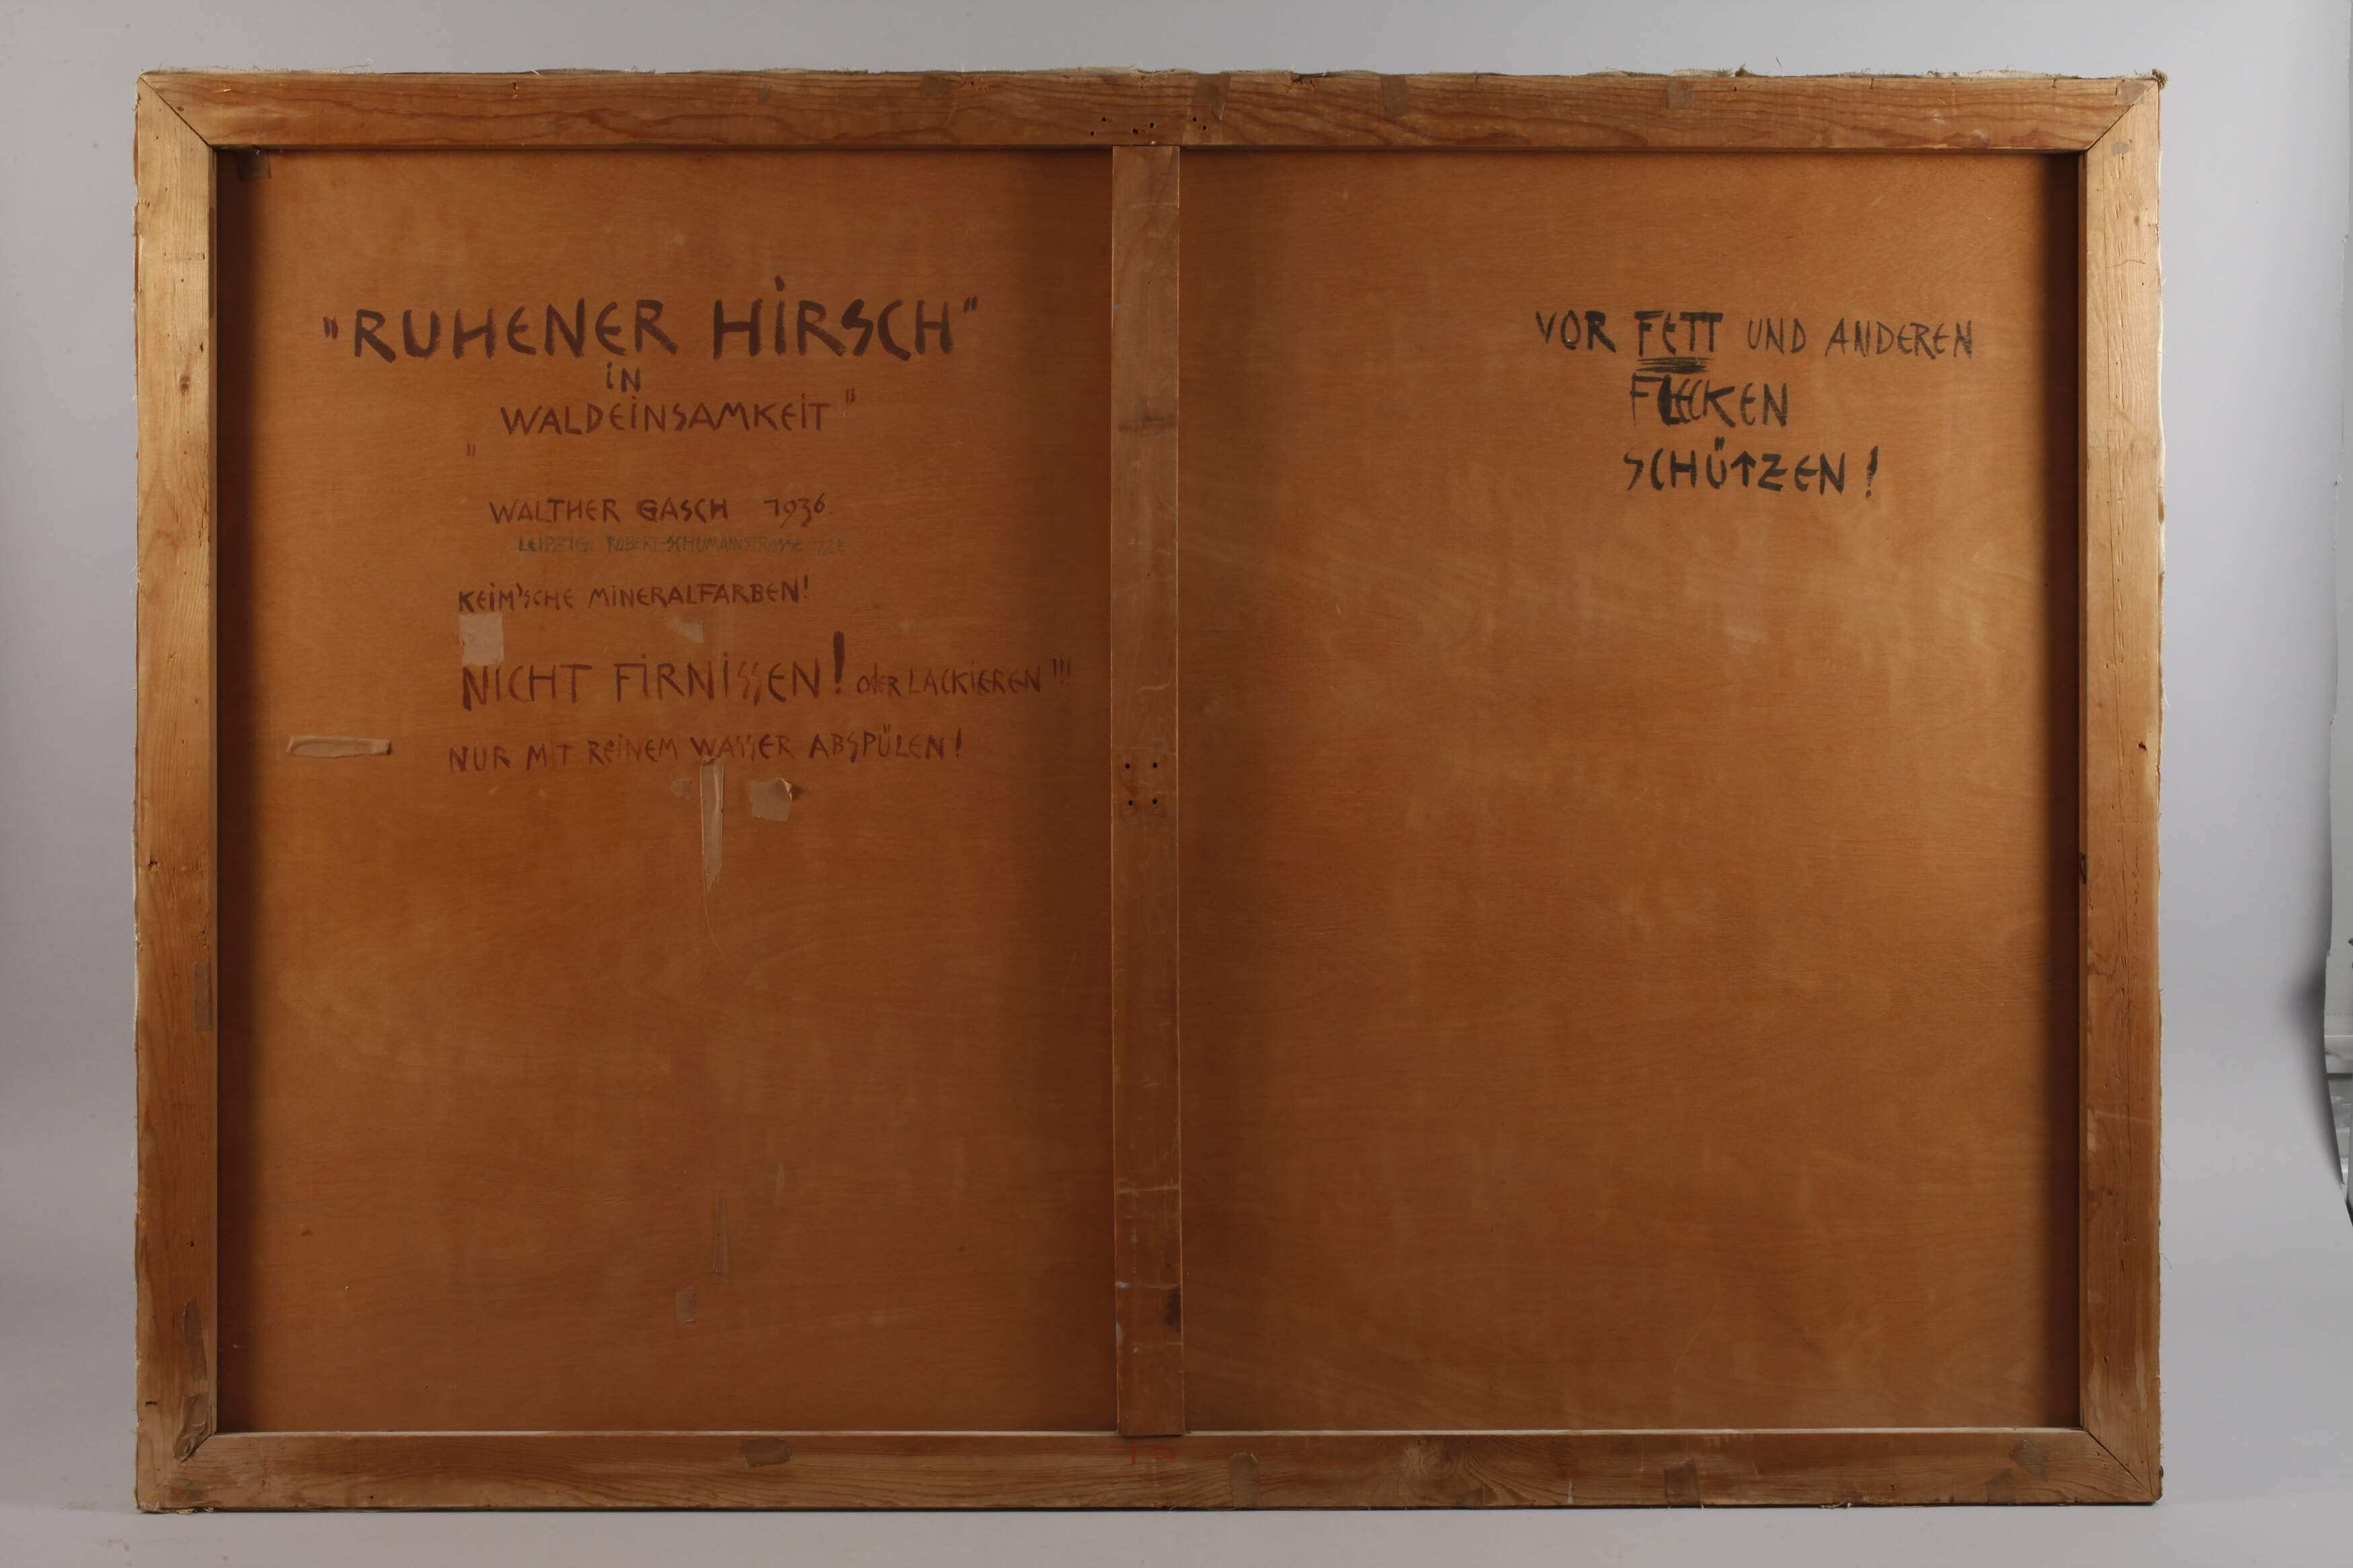 "RUHENER HIRSCH"
IN
WALDEINSAMKEIT"
"
WALTHER GASCH 1936
LEIPZIG. ROBERT-SCHUMANNSTRASSE
KEIM'SCHE MINERALFARBEN!
NICHT FIRNISSEN! oder LACKIEREN!!!
NUR MIT REINEM WASSER ABSPÜLEN!
VOR FETT UND ANDEREN
FLECKEN
SCHÜTZEN!